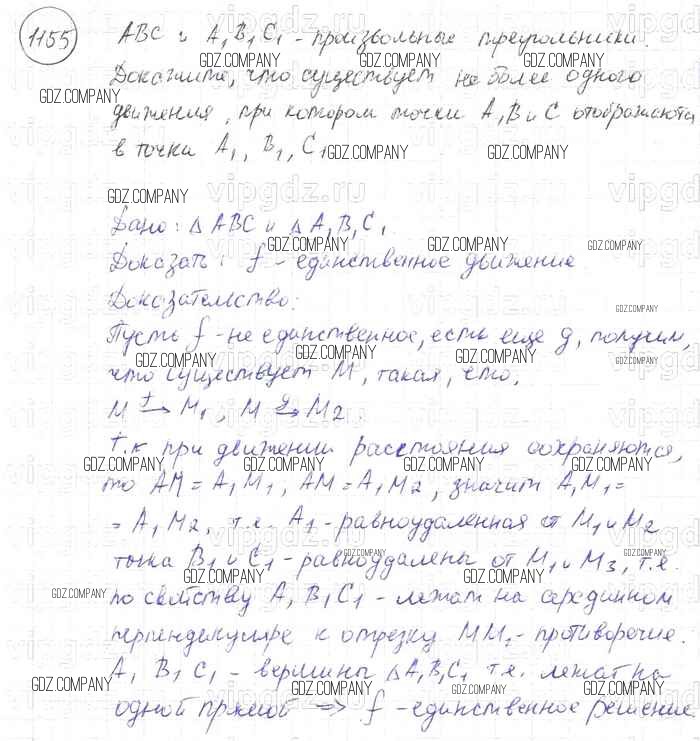 1155 ABC и A₁B₁C₁ - произвольные треугольники.
Докажите, что существует не более одного
движения, при котором точки A, B и C отображаются
в точки A₁, B₁, C₁
Дано: Δ ABC и Δ A₁B₁C₁.
Доказать: f - единственное движение
Доказательство:
Пусть f - не единственное, есть еще g, получим,
что существует M, такая, что,
M f→ M₁, M g→ M₂.
т.к при движении расстояния сохраняются,
то AM = A₁M₁, AM = A₁M₂, значит A₁M₁ =
= A₁M₂, т.е. A₁ - равноудаленная от M₁ и M₂
тока B₁ и C₁ - равноудалены от M₁ и M₃, т.е.
по свойству A₁B₁C₁ - лежат на серединном
перпендикуляре к отрезку MM₁ - противоречие.
A₁ B₁ C₁ - вершины Δ A₁B₁C₁ т.е. лежат на
одной прямой => f - единственное решение
GDZ.COMPANY
vipgdz.ru